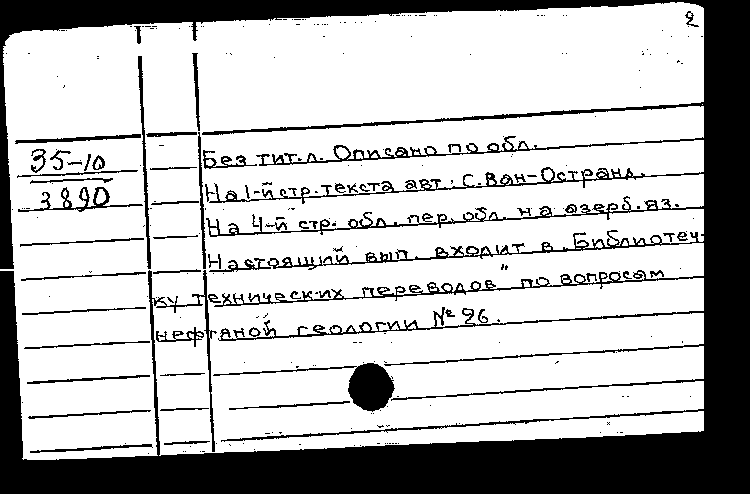 2
35-10
3890
Без тит.л. Описано по обл.
На 1-й стр. текста авт.: С. Ван-Остранд.
На 4-й стр. обл. пер. обл. на азерб. яз.
Настоящий вып. входит в „Библиотеч-
ку технических переводов" по вопросам
нефтяной геологии № 26.